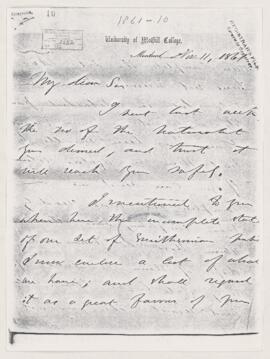 10
1861-10
University of McGill College,
Montreal, Nov. 11, 1861
My dear Sir
I sent last week
the no of the Naturalist
you desired, and trust it
will reach you safely.
I mentioned to you
when here the incomplete state
of our set of Smithsonian
I now enclose a list of what
we have; and shall regard
it as a great favour if you